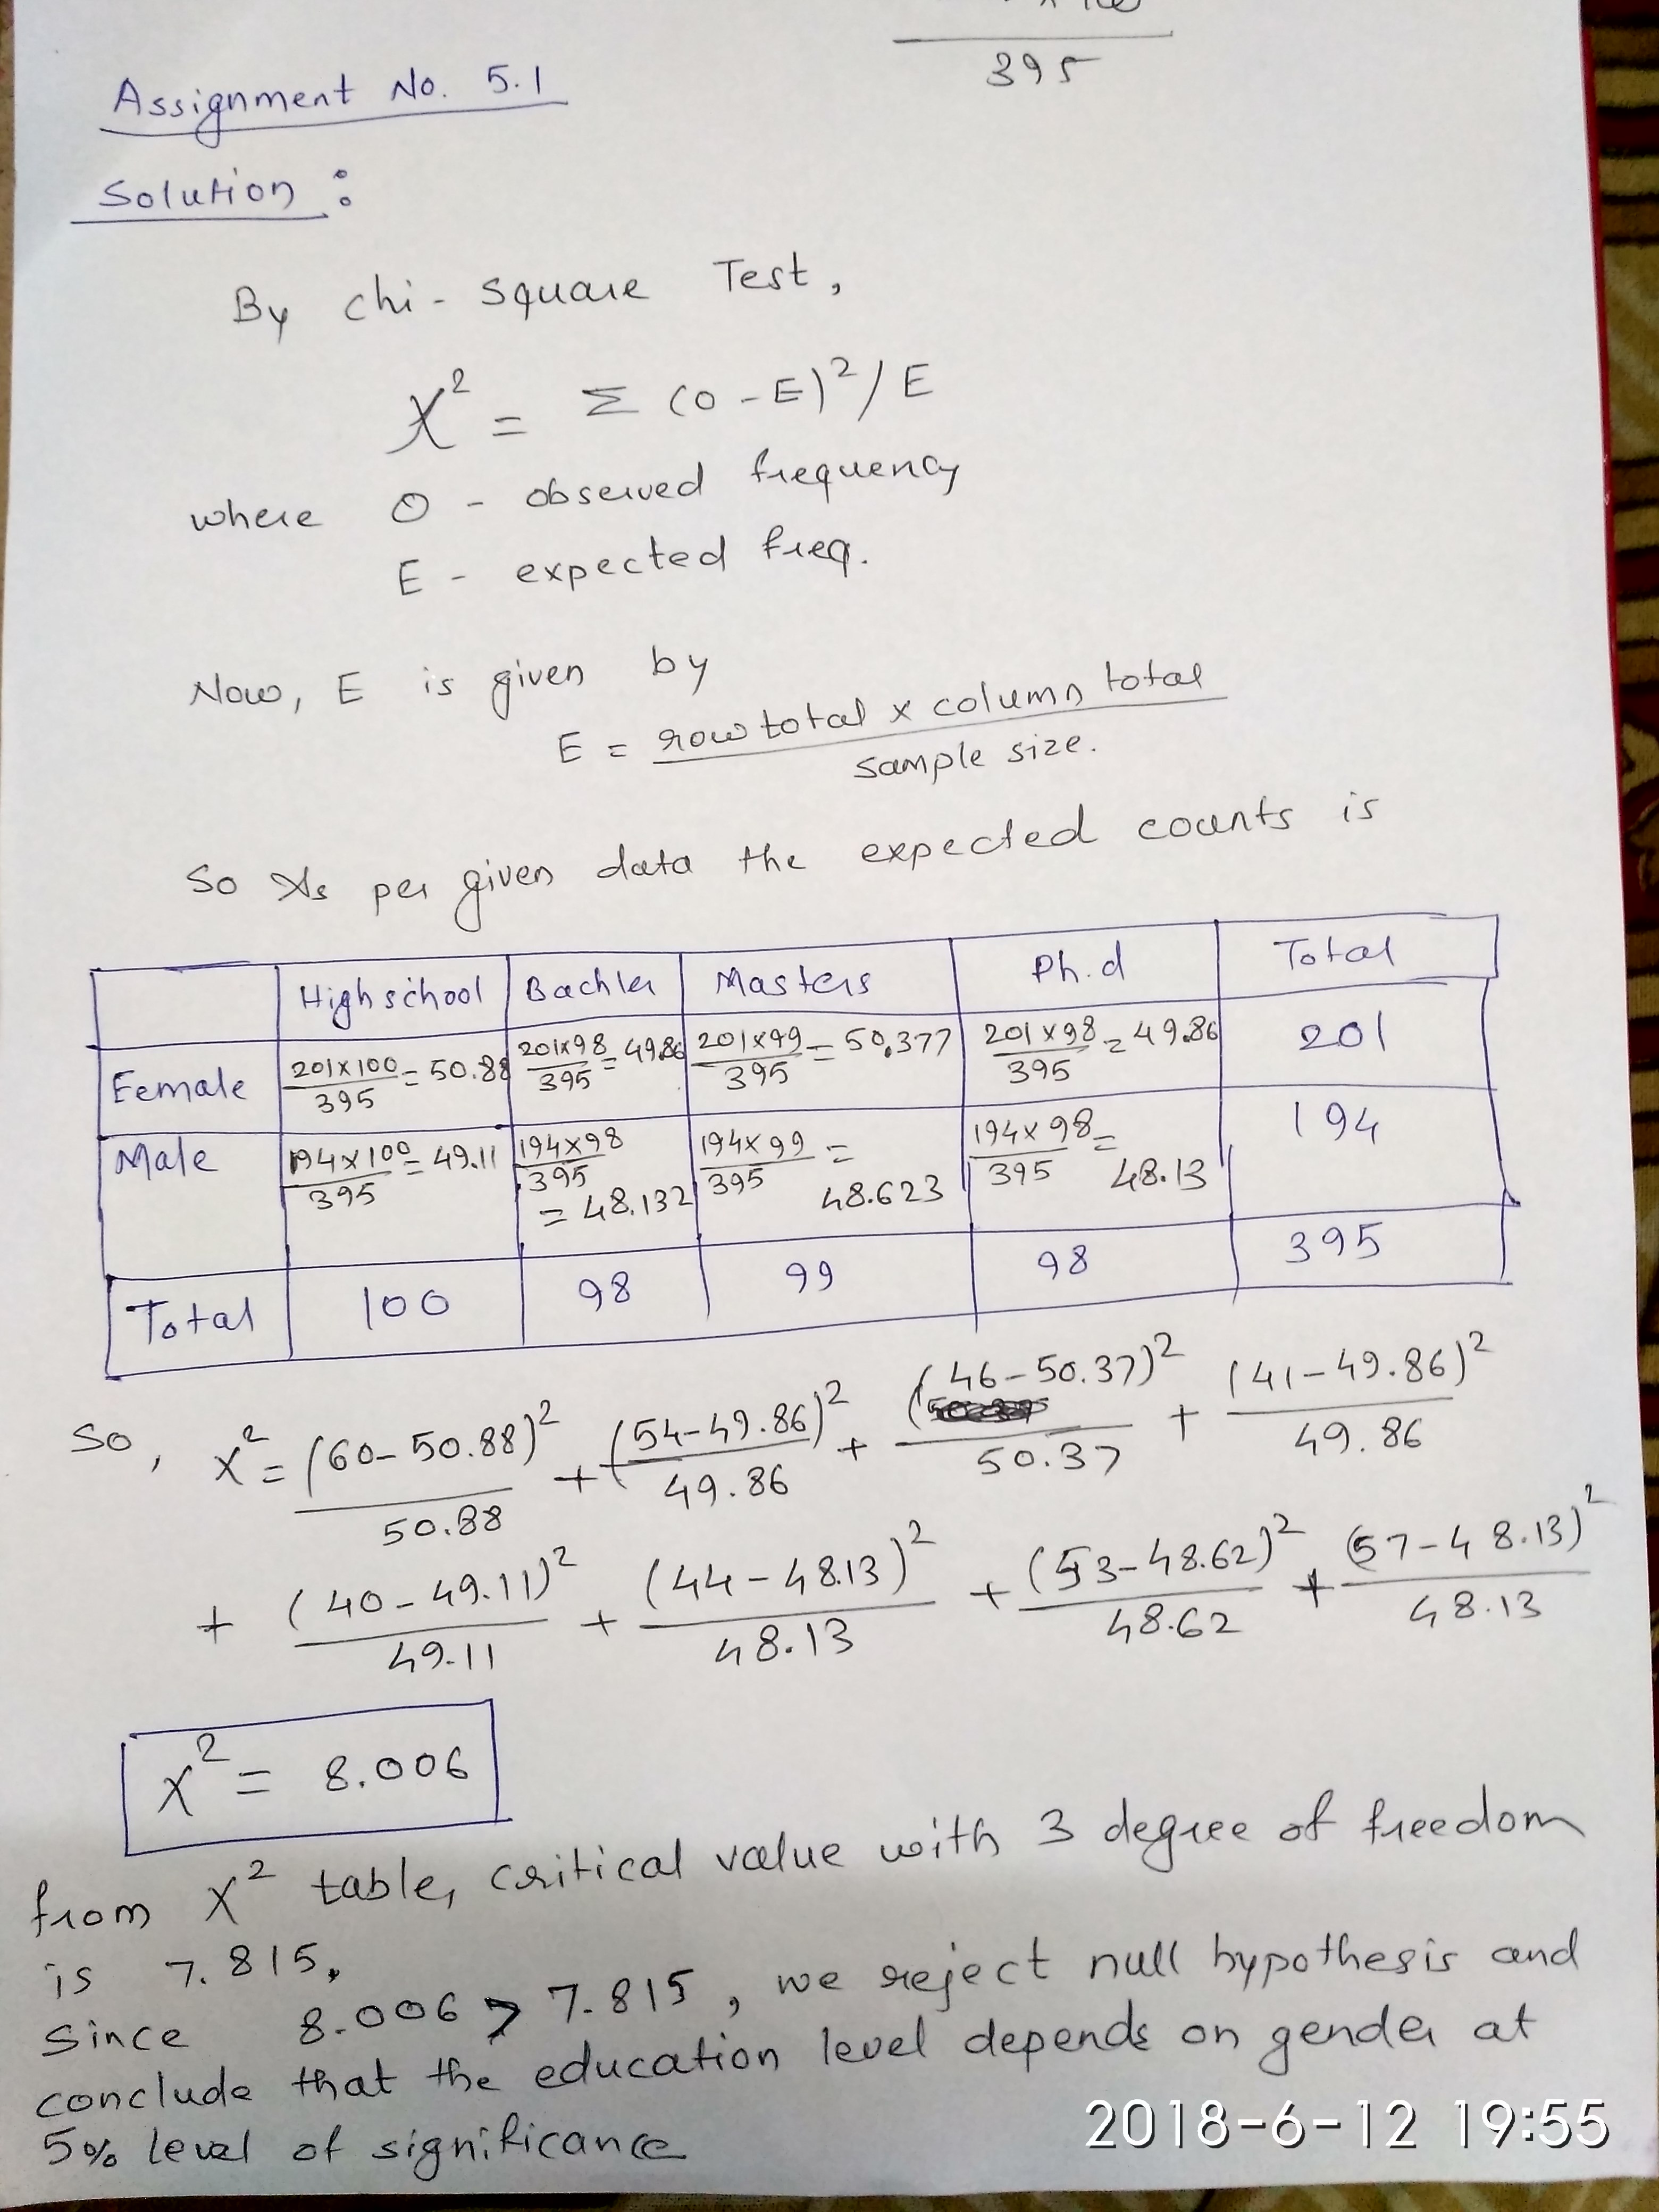 395
Assignment No. 5.1
Solution :
By chi-square Test,
χ² = Σ (O - E)² / E
where O - observed frequency
E - expected freq.
Now, E is given by
E = row total x column total / sample size.
So As per given data the expected counts is
Highschool Bachler Masters Ph.d Total
Female 201x100/395 = 50.88 201x98/395 = 49.86 201x99/395 = 50.377 201x98/395 = 49.86 201
Male 194x100/395 = 49.11 194x98/395 = 48.132 194x99/395 = 48.623 194x98/395 = 48.13 194
Total 100 98 99 98 395
So, x² = (60-50.88)²/50.88 + (54-49.86)²/49.86 + (46-50.37)²/50.37 + (41-49.86)²/49.86
+ (40-49.11)²/49.11 + (44-48.13)²/48.13 + (53-48.62)²/48.62 + (57-48.13)²/48.13
x² = 8.006
from x² table, critical value with 3 degree of freedom
is 7.815.
Since 8.006 > 7.815, we reject null hypothesis and
conclude that the education level depends on gender at
5% level of significance
2018-6-12 19:55